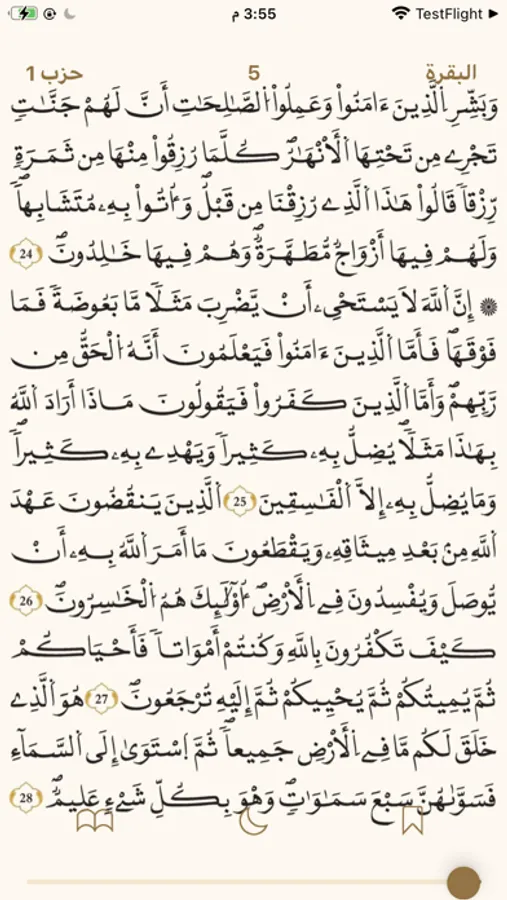 3:55 م
TestFlight
البقرة 5 حزب 1
وَبَشِّرِ اِ۬لذِينَ ءَامَنُواْ وَعَمِلُواْ اُ۬لصَّٰلِحَٰتِ أَنَّ لَهُمْ جَنَّٰتٖ
تَجْرِے مِن تَحْتِهَا اَ۬لَانْهَٰرُۖ كُلَّمَا رُزِقُواْ مِنْهَا مِن ثَمَرَةٖ
رِّزْقاٗ قَالُواْ هَٰذَا اَ۬لذِے رُزِقْنَا مِن قَبْلُۖ وَأُتُواْ بِهِۦ مُتَشَٰبِهاٗۖ
وَلَهُمْ فِيهَا أَزْوَٰجٞ مُّطَهَّرَةٞۖ وَهُمْ فِيهَا خَٰلِدُونَۖ 24
۞ إِنَّ اَ۬للَّهَ لَا يَسْتَحْيِۦ أَنْ يَّضْرِبَ مَثَلاٗ مَّا بَعُوضَةٗ فَمَا
فَوْقَهَاۖ فَأَمَّا اَ۬لذِينَ ءَامَنُواْ فَيَعْلَمُونَ أَنَّهُ اُ۬لْحَقُّ مِن
رَّبِّهِمْۖ وَأَمَّا اَ۬لذِينَ كَفَرُواْ فَيَقُولُونَ مَاذَا أَرَادَ اَ۬للَّهُ
بِهَٰذَا مَثَلاٗۖ يُضِلُّ بِهِۦ كَثِيراٗ وَيَهْدِے بِهِۦ كَثِيراٗۖ
وَمَا يُضِلُّ بِهِۦ إِلَّا اَ۬لْفَٰسِقِينَ 25 اَ۬لذِينَ يَنقُضُونَ عَهْدَ
اَ۬للَّهِ مِنۢ بَعْدِ مِيثَٰقِهِۦ وَيَقْطَعُونَ مَا أَمَرَ اَ۬للَّهُ بِهِۦ أَنْ
يُّوصَلَ وَيُفْسِدُونَ فِے اِ۬لَارْضِۖ أُوْلَٰٓئِكَ هُمُ اُ۬لْخَٰسِرُونَۖ 26
كَيْفَ تَكْفُرُونَ بِاللَّهِ وَكُنتُمْ أَمْوَٰتاٗ فَأَحْيَٰكُمْ
ثُمَّ يُمِيتُكُمْ ثُمَّ يُحْيِيكُمْ ثُمَّ إِلَيْهِ تُرْجَعُونَۖ 27 هُوَ اَ۬لذِے
خَلَقَ لَكُم مَّا فِے اِ۬لَارْضِ جَمِيعاٗۖ ثُمَّ اَ۪سْتَوَىٰ إِلَى اَ۬لسَّمَآءِ
فَسَوَّىٰهُنَّ سَبْعَ سَمَٰوَٰتٖۖ وَهْوَ بِكُلِّ شَےْءٍ عَلِيمٞۖ 28